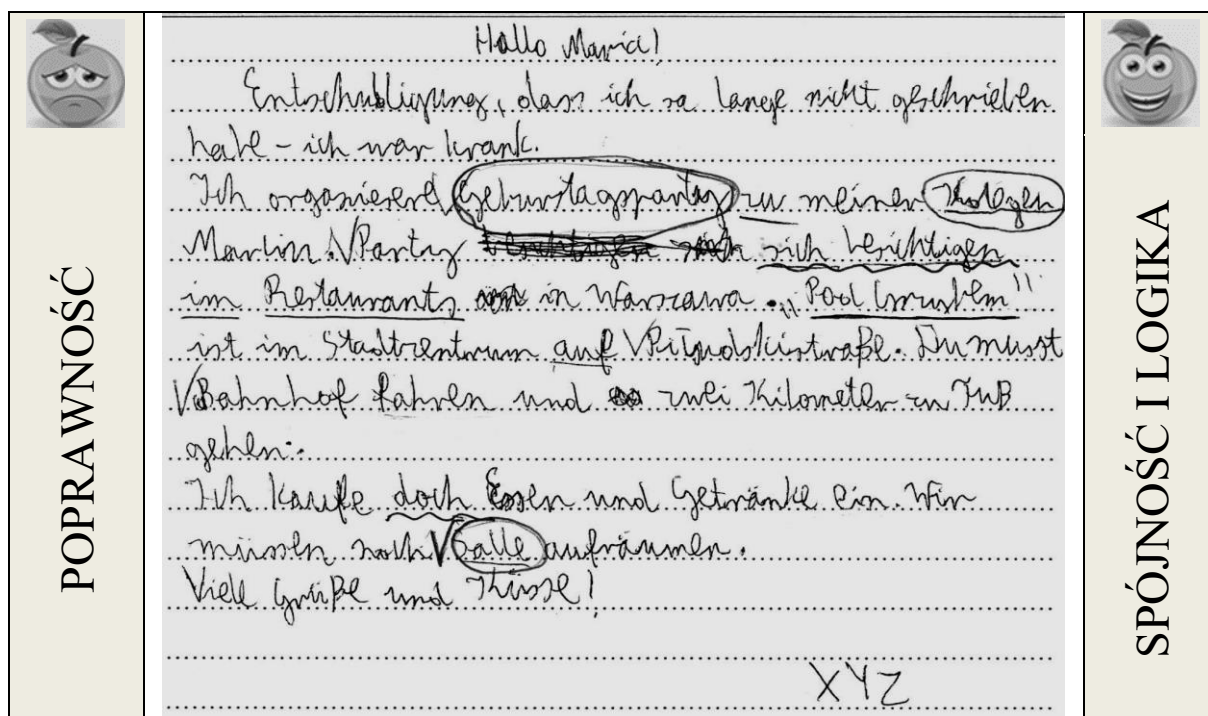 POPRAWNOŚĆ
Hallo Maria!
Entschubligung, dass ich so lange nicht geschrieben
habe – ich war krank.
Ich organisiere Geburstagsparty zu meiner Kolegen
Martin. Party sich besichtigen
im Restaurants in Warszawa. "Pod
ist im Stadtzentrum auf Piłsudskistraße. Du musst
Bahnhof fahren und zwei Kilometer zu Fuß
gehen.
Ich kaufe doch Essen und Getränke ein. Wir
müssen noch Salle aufräumen.
Viele Grüße und Küsse!
XYZ
SPÓJNOŚĆ I LOGIKA